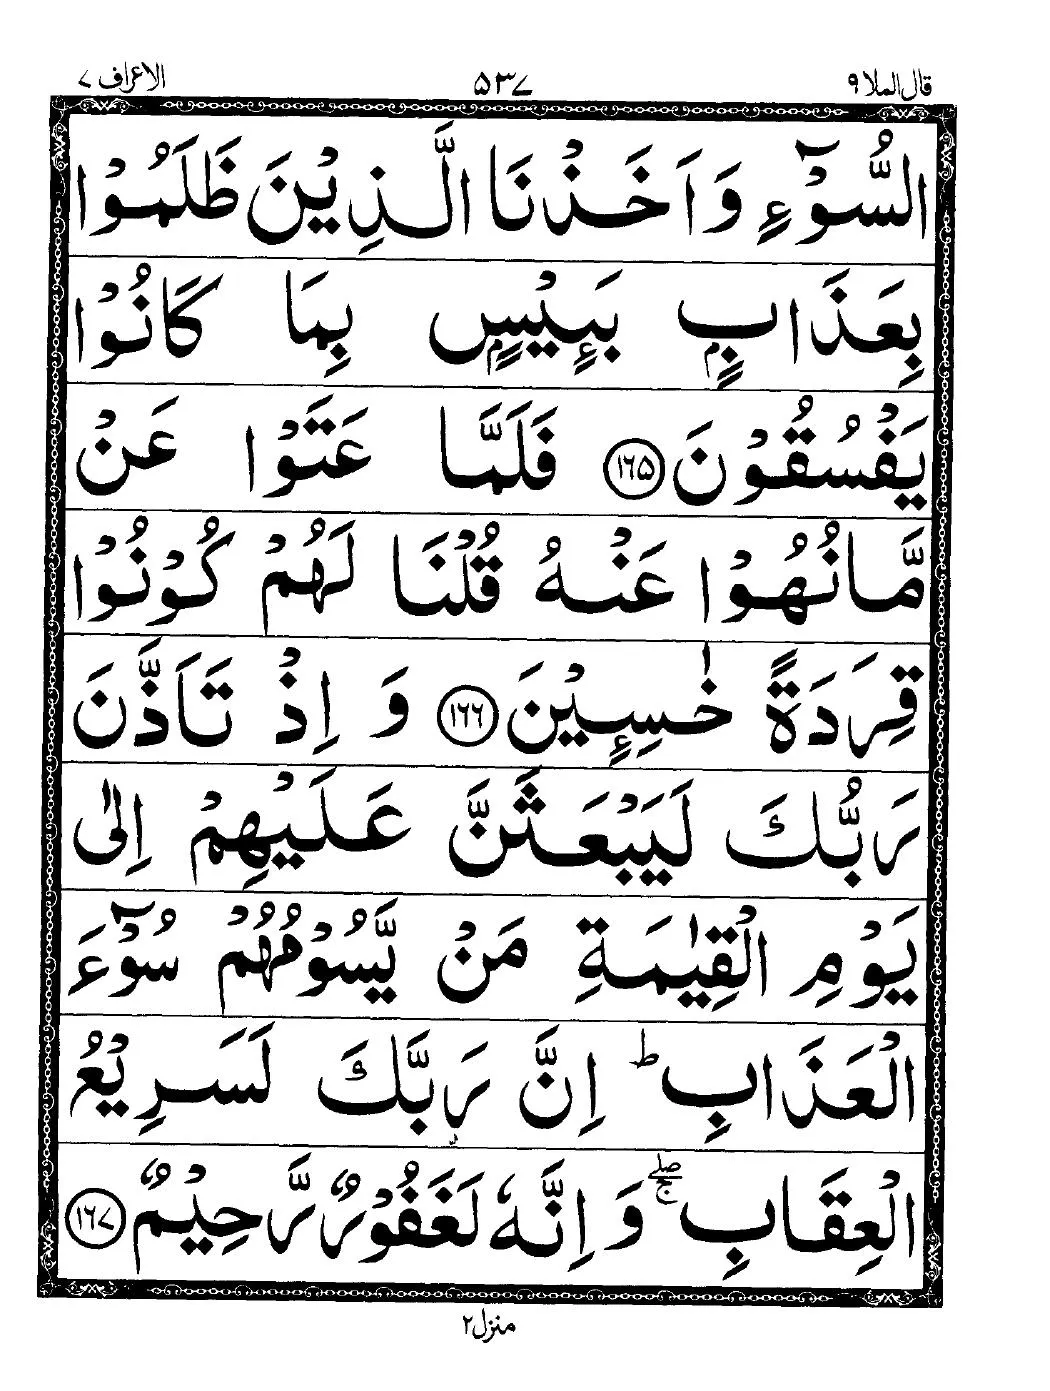 قال الملا ٩ ٥٣٧ الاعراف ٧
السُّوْٓءِ وَاَخَذْنَا الَّذِيْنَ ظَلَمُوْا
بِعَذَابٍۭ بَـِٕيْسٍۭ بِمَا كَانُوْا
يَفْسُقُوْنَ ١٦٥ فَلَمَّا عَتَوْا عَنْ
مَّا نُهُوْا عَنْهُ قُلْنَا لَهُمْ كُوْنُوْا
قِرَدَةً خٰسِـِٕيْنَ ١٦٦ وَ اِذْ تَاَذَّنَ
رَبُّكَ لَيَبْعَثَنَّ عَلَيْهِمْ اِلٰى
يَوْمِ الْقِيٰمَةِ مَنْ يَّسُوْمُهُمْ سُوْٓءَ
الْعَذَابِ ؕ اِنَّ رَبَّكَ لَسَرِيْعُ
الْعِقَابِ ۚۖ وَ اِنَّهٗ لَغَفُوْرٌ رَّحِيْمٌ ١٦٧
منزل ٢